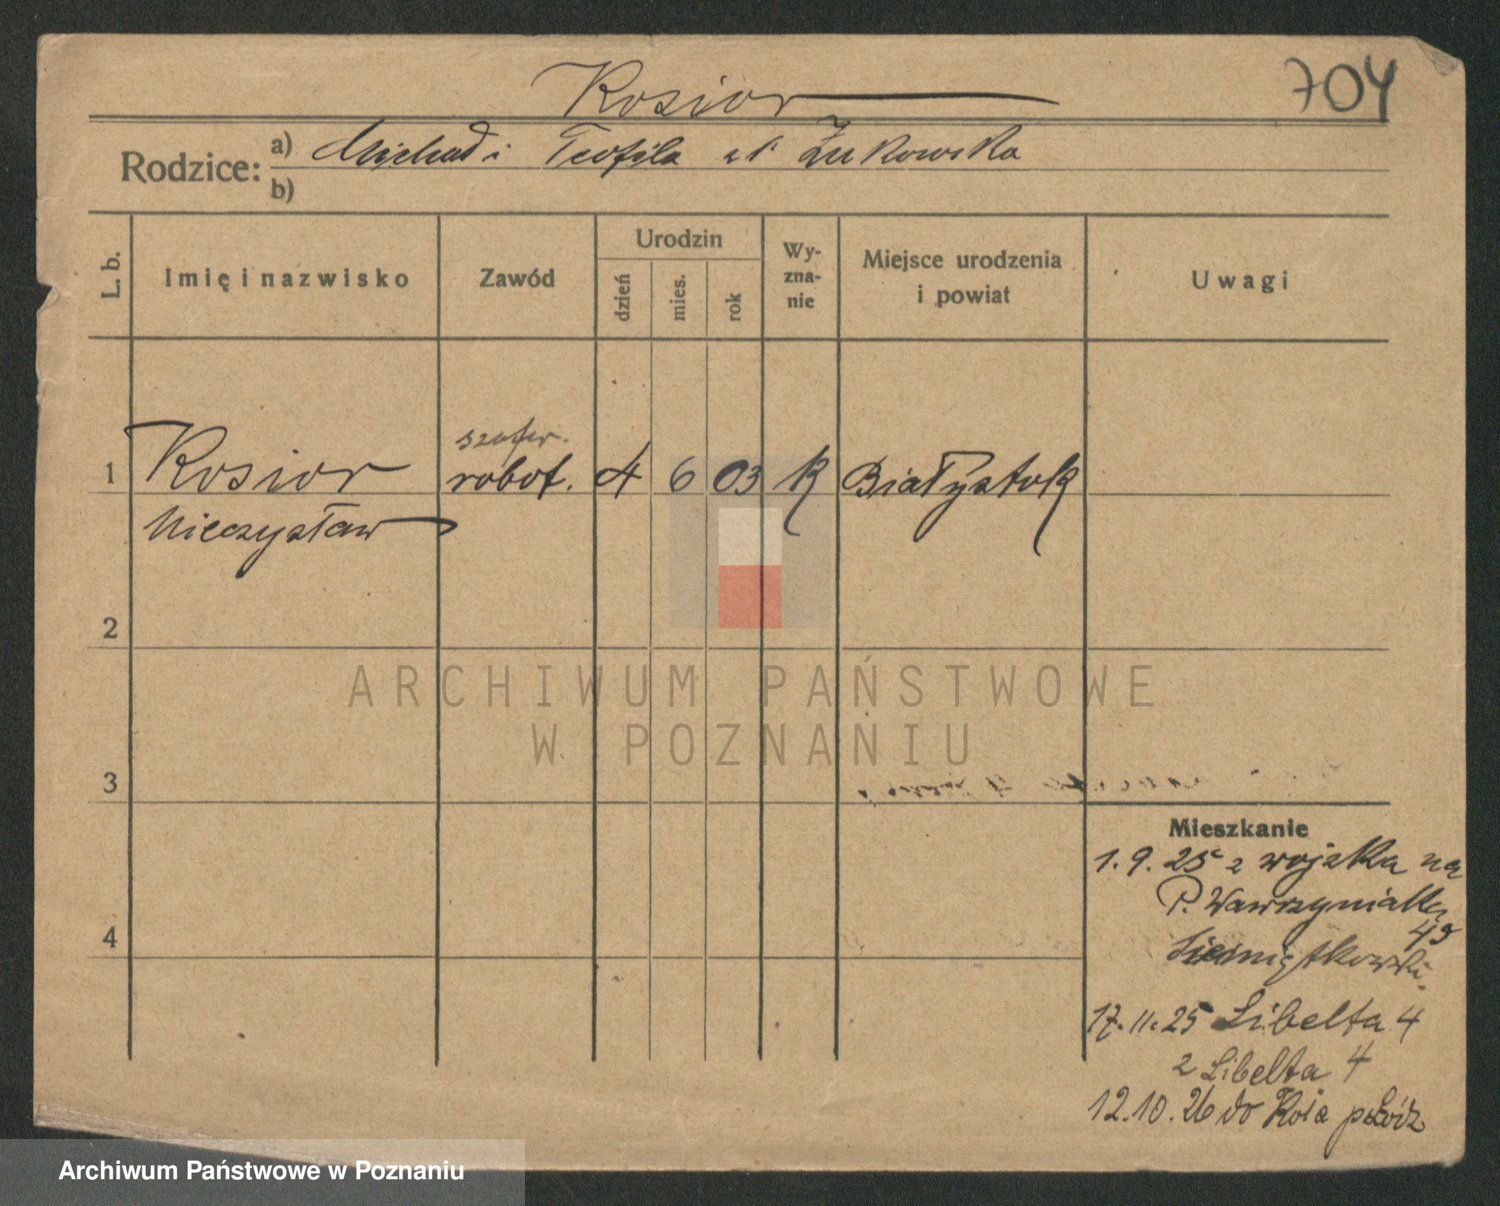 Kosior
704
Rodzice:
a) Michał i Teofila Żukowska
b)
L. b.
Imię i nazwisko
Zawód
Urodzin
dzień
mies.
rok
Wy-
zna-
nie
Miejsce urodzenia
i powiat
Uwagi
szofer.
1 Kosior robot. 4 6 03 K Białystok
Mieczysław
2
3
4
Mieszkanie
1. 9. 25 z wojska na
P. Wawrzyniaka
45
Siemiątkowski.
17. 11. 25 Libelta 4
z Libelta 4
12. 10. 26 do Koła p Łódz
ARCHIWUM PAŃSTWOWE
W POZNANIU
Archiwum Państwowe w Poznaniu